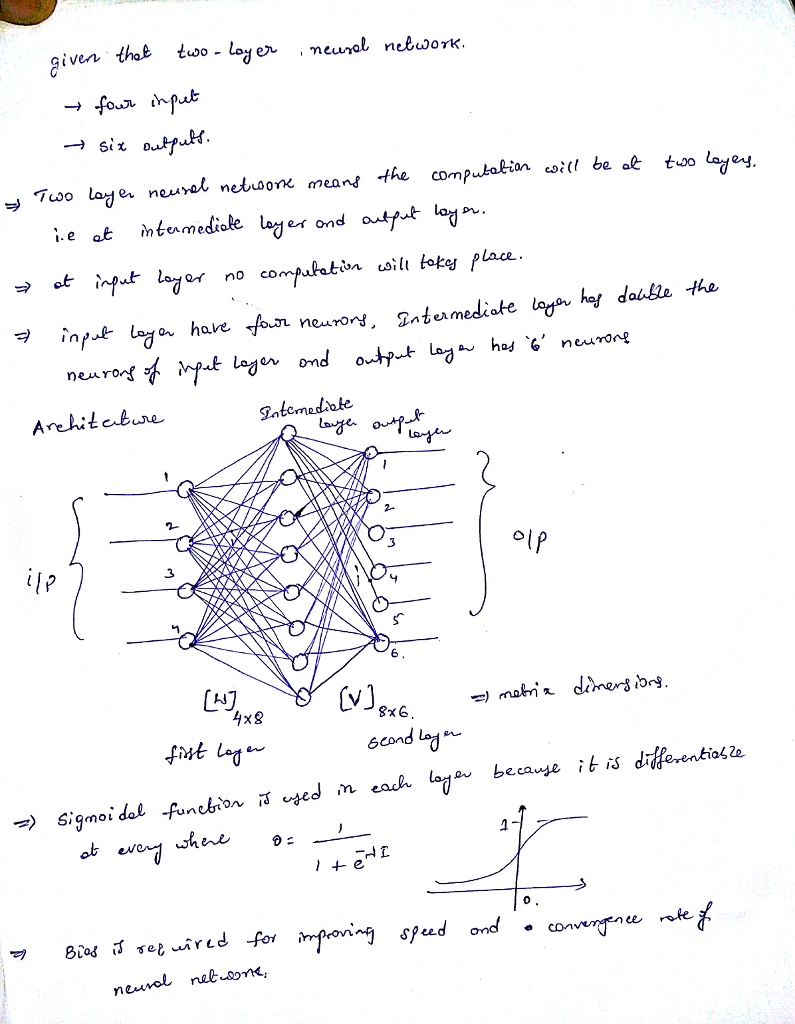 given that two-layer, neural network.
→ four input
→ six outputs.
⇒ Two layer neural network means the computation will be at two layers.
i.e at intermediate layer and output layer.
⇒ at input layer no computation will takes place.
⇒ input layer have four neurons, Intermediate layer has double the
neurons of input layer and output layer has '6' neurons
Architecture
Intemediate
layer
output
layer
1
2
3
4
i/p
1
2
3
4
5
6.
o/p
[W]4x8
[V]8x6.
⇒ matrix dimensions.
first layer
second layer
⇒ Sigmoidal function is used in each layer because it is differentiable
at every where
O = 1 / 1 + e^-λI
1
0.
⇒ Bias is required for improving speed and convergence rate of
neural network.